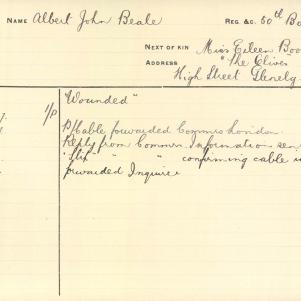 NAME Albert John Beale REG. &c. 50th Ba
NEXT OF KIN Miss Eileen Boo
ADDRESS "The Olives
High Street Glenelg
1/p "Wounded"
P/Cable forwarded Commrs London.
Reply from Commrs. Information
"Slip" " " confirming cable
forwarded Inquirer